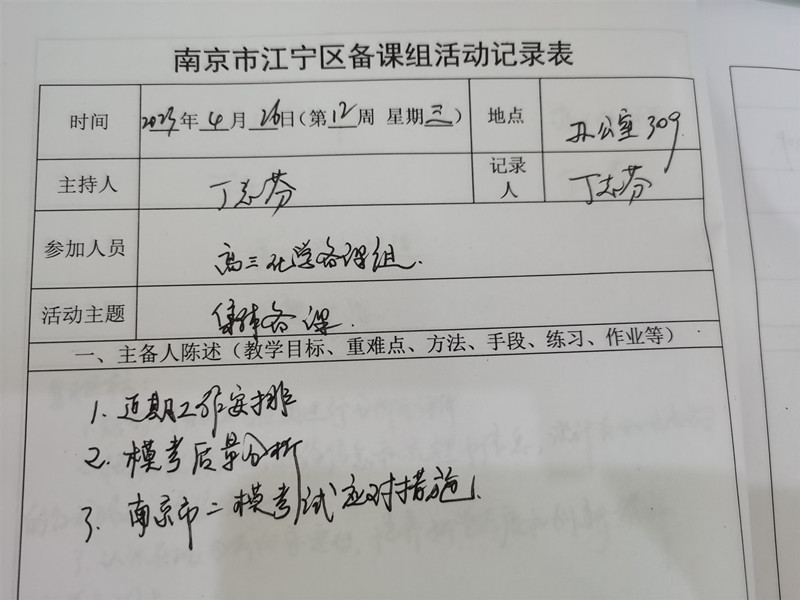 南京市江宁区备课组活动记录表
时间 2023年4月26日(第12周 星期三) 地点 办公室309
主持人 丁志芬 记录人 丁志芬
参加人员 高三化学备课组.
活动主题 集体备课.
一、主备人陈述（教学目标、重难点、方法、手段、练习、作业等）
1. 近期工作安排
2. 模考质量分析
3. 南京市二模考试应对措施.